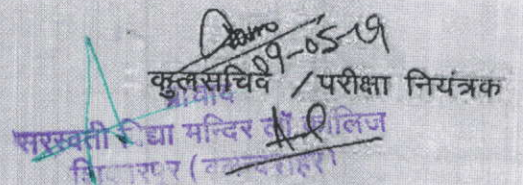 09-05-19
कुलसचिव / परीक्षा नियंत्रक
प्राचार्य
सरस्वती विद्या मन्दिर लॉ कॉलिज
शिकारपुर (बुलन्दशहर)